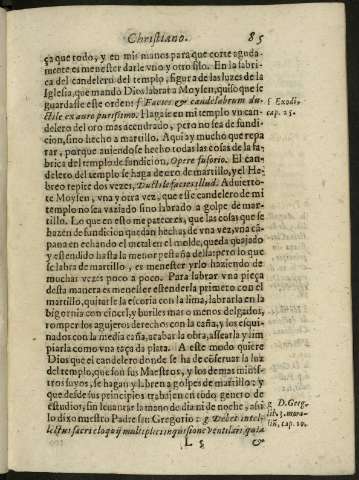 Christiano. 85
ça que todo, y en mis manos para que corte aguda-
mente es menester darle vno y otro filo. En la fabri-
ca del candelero del templo, figura de las luzes de la
Iglesia, que mandò Dios labrar a Moysen, quiso que se
guardasse este orden: f Facies & candelabrum du-
ctile ex auro purissimo. Hagase en mi templo vn can-
delero del oro mas acendrado, pero no sea de fundi-
cion, sino hecho a martillo. Aqui ay mucho que repa
rar, porque auiendose hecho todas las cosas de la fa-
brica del templo de fundicion, Opere fusorio. El can-
delero del templo se haga de oro de martillo, y el He-
breo repite dos vezes, Ductile facies illud. Aduierto-
te Moysen, vna y otra vez, que este candelero de mi
templo no sea variado sino labrado a golpe de mar-
tillo. Lo que en esto me parece es, que las cosas que se
hazen de fundicion quedan hechas, de vna vez, vna cã
pana en echando el metal en el molde, queda quajado
y estendido hasta la menor pestaña della: pero lo que
se labra de martillo, es menester yrlo haziendo de
muchas vezes poco a poco. Para labrar vna pieça
desta manera es menester estenderla primero con el
martillo, quitarle la escoria con la lima, labrarla en la
bigornia con cincel, y buriles mas o menos delgados,
romper los agujeros derechos con la caña, y los esqui-
nados con la media caña, acabar la obra, assearla y lim
piarla como vna taça de plata. A este modo quiere
Dios que el candelero donde se ha de cõseruar la luz
del templo, que son sus Maestros, y los demas minis-
tros suyos, se hagan y labren a golpes de martillo: y
que desde sus principios trabajen en todo genero de
estudios, sin leuantar la mano de dia ni de noche, assi
lo dixo nuestro Padre san Gregorio: g Debet intel-
lectus sacri eloquij multiplici inquisitione ventilari, quia
L 5 &
f Exodi,
cap. 25.
g D. Greg.
lib. 3. mora-
liũ, cap. 10.